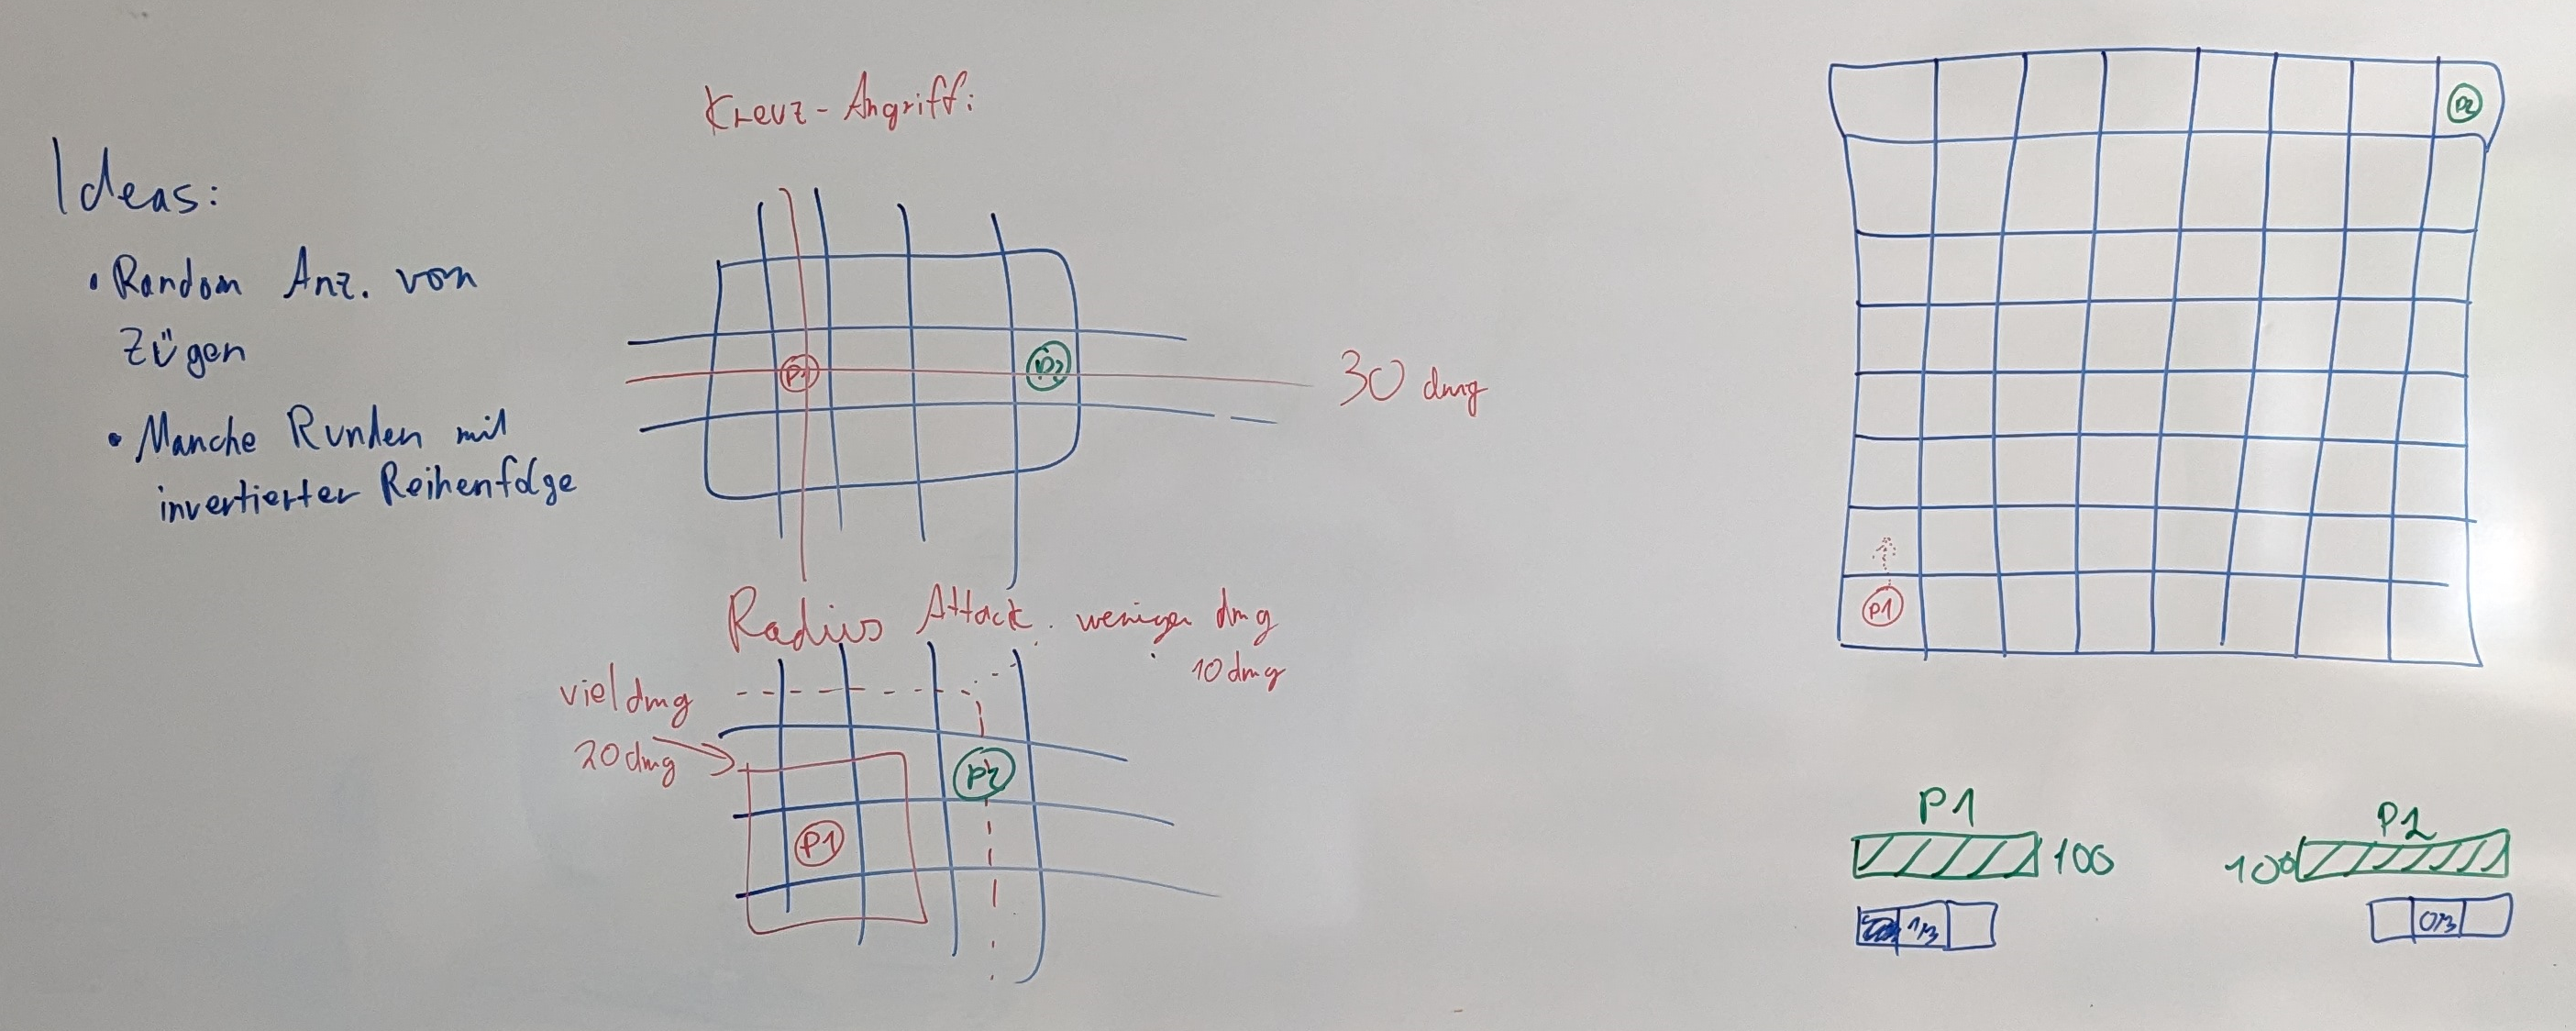 Ideas:
• Random Anz. von
Zügen
• Manche Runden mit
invertierter Reihenfolge
Kreuz-Angriff:
P1
P2
30 dmg
Radius Attack.
weniger dmg
10 dmg
viel dmg
20 dmg
P2
P1
P2
P1
P1
100
1/3
P2
100
0/3